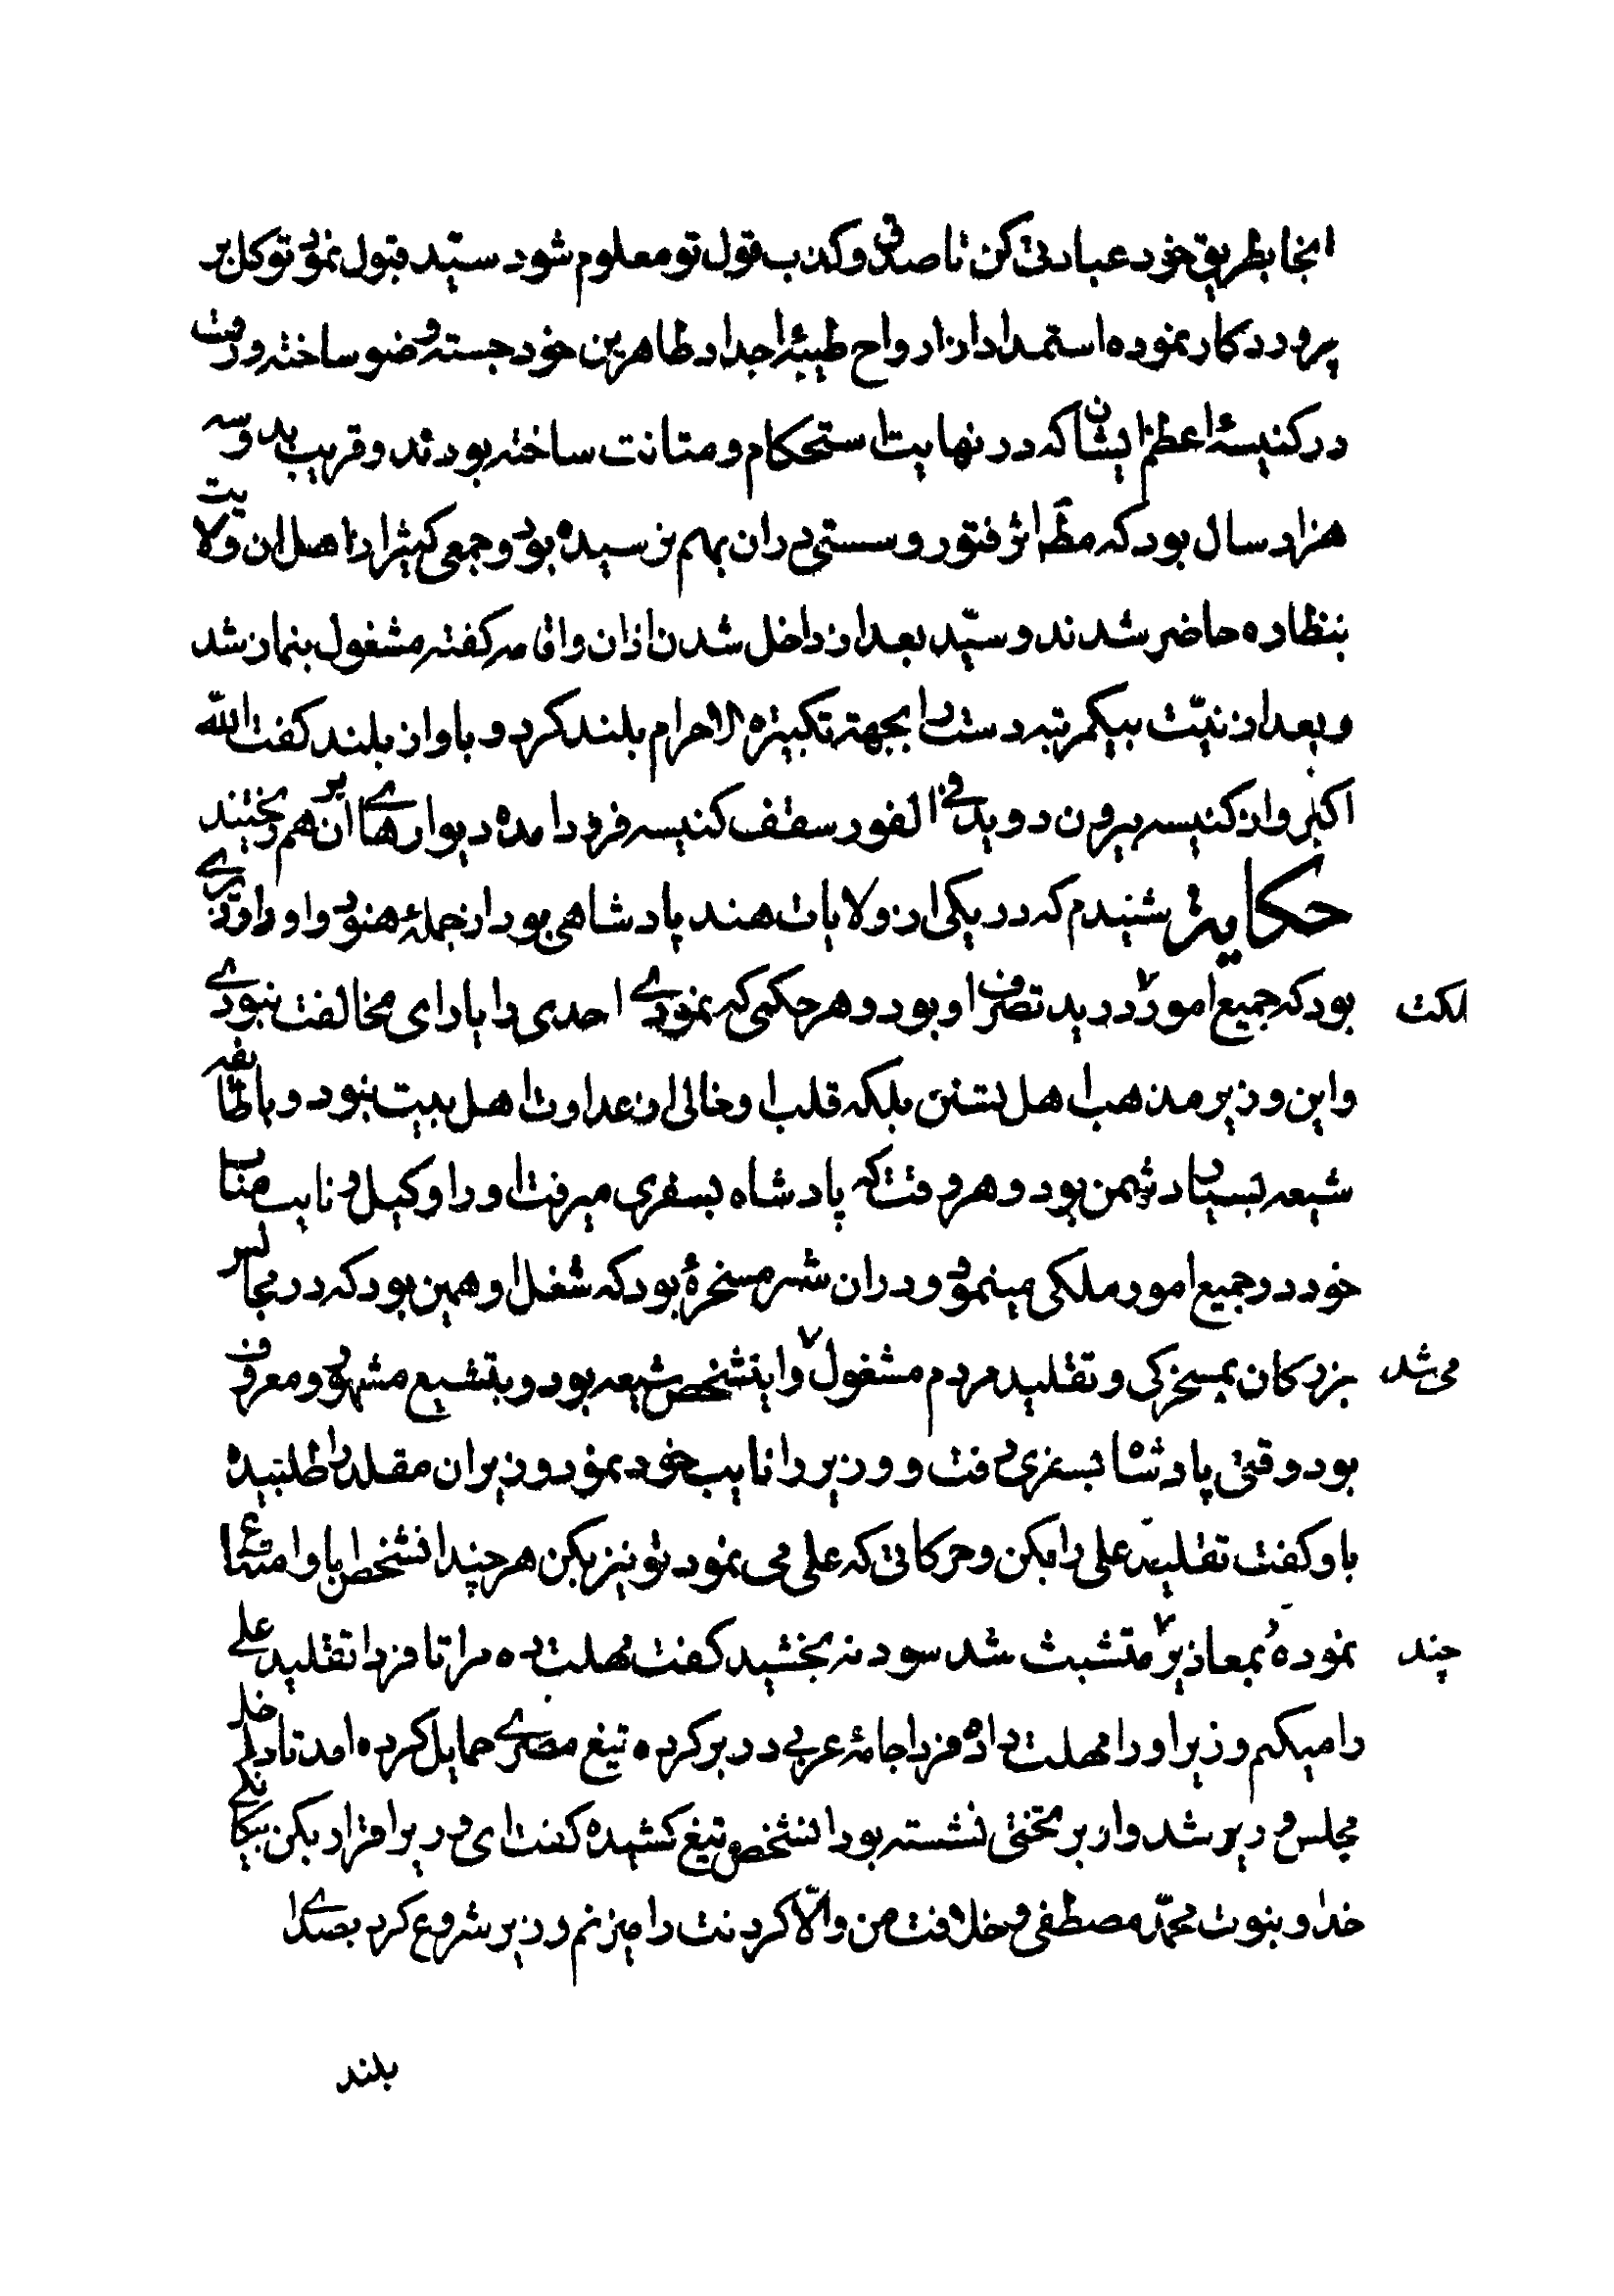 انجا بطریق خود عبادتی کن تا صدق و کذب قول تو معلوم شود سیّد قبول نمود توکل بر
پروردکار نموده استمداد از ارواح طیبهٔ اجداد طاهرین خود جسته و وضو ساخته و رفت
در کنیسهٔ اعظم ایشان که در نهایت استحکام و متانت ساخته بودند و قریب بدو سه
هزار سال بود که مطلقا اثر فتور و سستی دران بهم نرسیده بود و جمعی کثیر از اهل ان ولایت
بنظاره حاضر شدند و سیّد بعد از داخل شدن اذان و اقامه کفته مشغول بنماز شد
و بعد از نیّت بیکمرتبه دست را بجهته تکبیرة الاحرام بلند کرد و باواز بلند کفت الله
اکبر و از کنیسه بیرون دوید فی الفور سقف کنیسه فرود امده دیوارهای ان بر هم ریختند
حکایة شنیدم که در یکی از ولایات هند پادشاهی بود از جملهٔ هنود و او را وزیری
بود که جمیع امور در ید تصرف او بود و هر حکمی که نمودی احدی را یارای مخالفت نبودی
ملکت
و این وزیر مذهب اهل تسنن بلکه قلب او خالی از عداوت اهل بیت نبود و با طایفه
شیعه بسیار دشمن بود و هر وقت که پادشاه بسفری میرفت او را وکیل و نایب مناب
خود در جمیع امور ملکی مینمود و دران شهر مسخرهٔ بود که شغل او همین بود که در مجالس
بزرکان بمسخرکی و تقلید مردم مشغول و اینشخص شیعه بود و بتشیع مشهور و معروف
می شد
بود وقتی پادشاه بسفری رفت و وزیر را نایب خود نمود وزیر ان مقلد را طلبیده
باو کفت تقلید علی را بکن و حرکاتی که علی می نمود تو نیز بکن هر چند انشخص با او امتناع
نموده بمعاذیر متشبث شد سود نه بخشید کفت مهلت ده مرا تا فردا تقلید علی
چند
را میکنم وزیر او را مهلت داده فردا جامهٔ عربی در بر کرده تیغ مصری حمایل کرده امد تا داخل
مجلس وزیر شد و او بر تختی نشسته بود انشخص تیغ کشیده کفت ای وزیر اقرار بکن بیکانکی
خدا و بنبوت محمّد مصطفی و خلافت من و الّا کردنت را میزنم وزیر شروع کرد بصدای
بلند